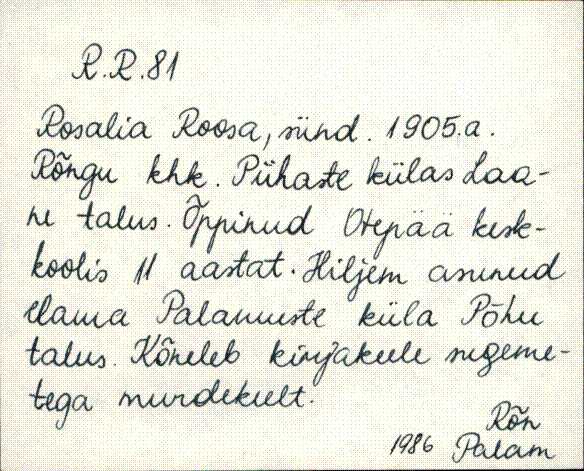 R.R.81
Rosalia Roosa, sünd. 1905.a.
Rõngu khk. Pühaste külas Laa-
ne talus. Õppinud Otepää kesk-
koolis 11 aastat. Hiljem asunud
elama Palamuste küla Põhu
talus. Kõneleb kirjakeele sugeme-
tega murdekeelt.
Rõn
1986 Palam